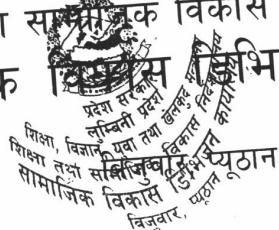 सामाजिक विकास
क विकास डिभि
प्रदेश सरकार
लुम्बिनी प्रदेश
शिक्षा, विज्ञान, युवा तथा खेलकुद
शिक्षा तथा सामाजिक विकास निर्देशनालय
सामाजिक विकास डिभिजन कार्यालय
बिजुवार, प्यूठान
बिजुवार, प्यूठान